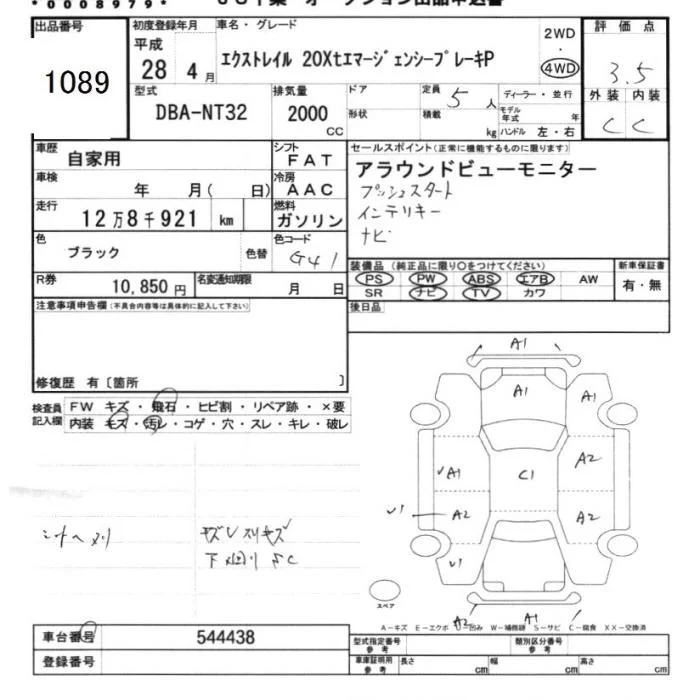 *0008979*
出品番号 初度登録年月 車名・グレード 2WD ・ 4WD 評価点
平成 28 4 月 エクストレイル 20XtエマージェンシーブレーキP 3.5
1089 型式 DBA-NT32 排気量 2000 CC ドア 形状 定員 5人 積載 kg ディーラー・並行 モデル年式 年 ハンドル 左・右 外装 内装 C C
車歴 自家用 シフト FAT セールスポイント(正常に機能するものに限ります)
車検 年 月( 日) 冷房 AAC アラウンドビューモニター
走行 12万8千921 km 燃料 ガソリン プッシュスタート
インテリキー
ナビ
色 ブラック 色替 色コード G41
装備品(純正品に限り○をつけてください) 新車保証書
R券 10,850円 名変通知期限 月 日 PS PW ABS エアB AW 有・無
SR ナビ TV カワ
注意事項申告欄(不具合内容等は具体的に記入して下さい) 後日品
修復歴 有〔箇所 〕
検査員記入欄 FW キズ・飛石・ヒビ割・リペア跡・×要
内装 キズ・汚レ・コゲ・穴・スレ・キレ・破レ
A1
A1 A1
A1 C1 A2
A2 A2
A2 A1
スペア
A-キズ E-エクボ U-凹み W-補修跡 S-サビ C-腐食 XX-交換済
車台番号 544438 型式指定番号 参考 類別区分番号 参考
登録番号 車庫証明用 参考 長さ cm 幅 cm 高さ cm